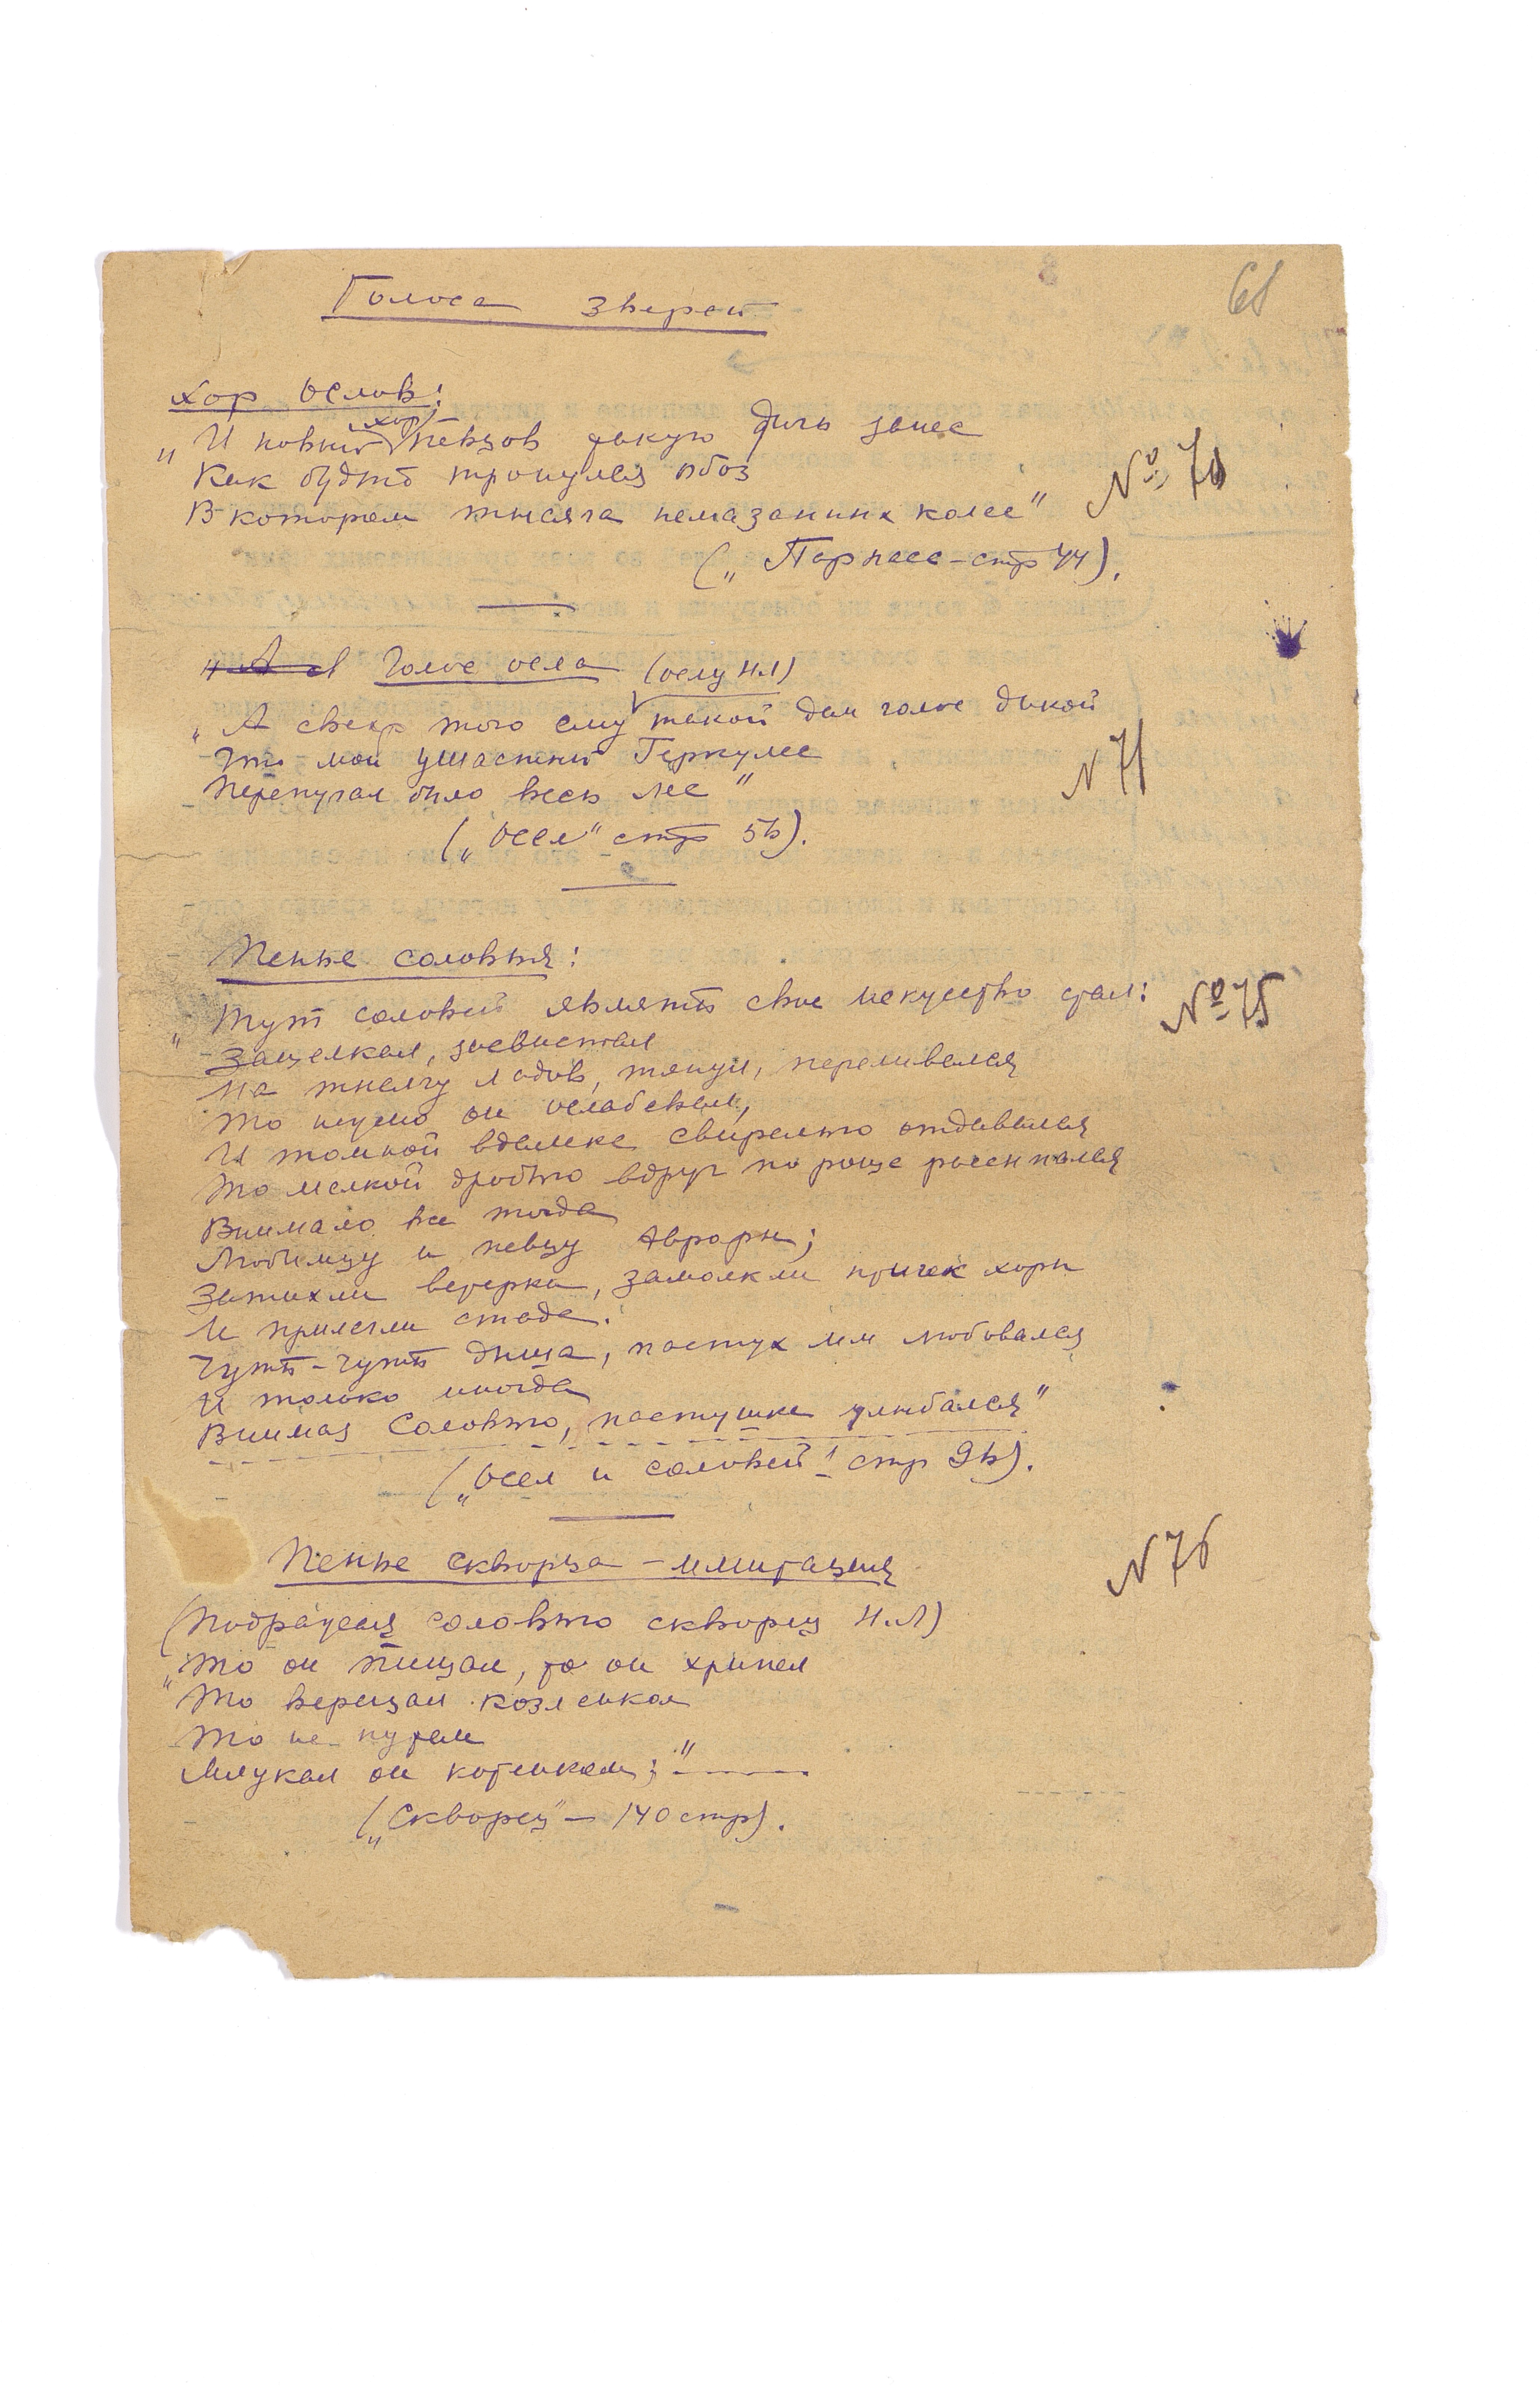 Голоса зверей
68
Хор ослов:
„И новый хор певцов такую дичь занес
Как будто тронулся обоз
В котором тысяча немазанных колес"
№ 70
(„Парнасс – стр 44).
Голос осла (ослу Н.Л)
„А сверх того ему такой дан голос дикой
Что мой ушастый Геркулес
Перепугал было весь лес"
N 71
(„Осел" стр 56).
Пенье соловья:
„Тут соловей являть свое искусство стал:
№ 75
Защелкал, засвистал
На тысячу ладов, тянул, переливался
То нежно он ослабевал,
И томной вдалеке свирелью отдавался
То мелкой дробью вдруг по роще рассыпался
Внимало все тогда
Любимцу и певцу Авроры;
Затихли ветерки, замолкли птичек хоры
И прилегли стада.
Чуть-чуть дыша, пастух им любовался
И только иногда
Внимая Соловью, пастушке улыбался"
(„Осел и соловей" стр 96).
Пенье скворца – имитация
N 76
(Подражая соловью скворец Н.Л)
„То он пищал, то он хрипел
То верещал козленком
То не путем
Мяукал он котенком;"
(„Скворец" – 140 стр).